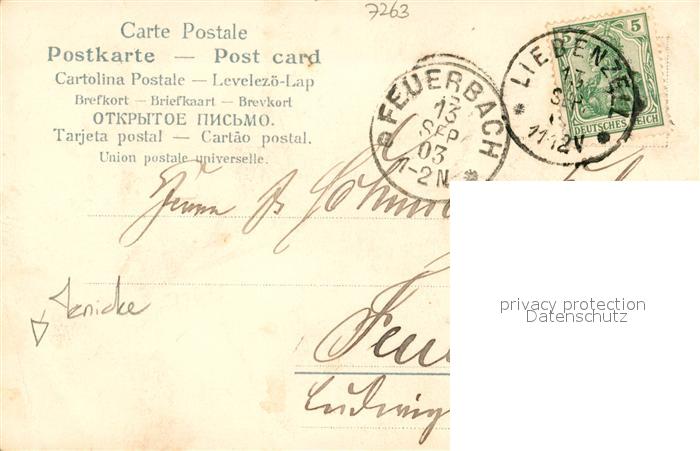 7263
Carte Postale
Postkarte — Post card
Cartolina Postale — Levelező-Lap
Brefkort — Briefkaart — Brevkort
ОТКРЫТОЕ ПИСЬМО.
Tarjeta postal — Cartão postal.
Union postale universelle.
FEUERBACH
13
SEP
03
1-2 N
LIEBENZELL
13
11-12V
5
DEUTSCHES REICH
Herrn
Jericke
privacy protection
Datenschutz
Feu
Ludwig